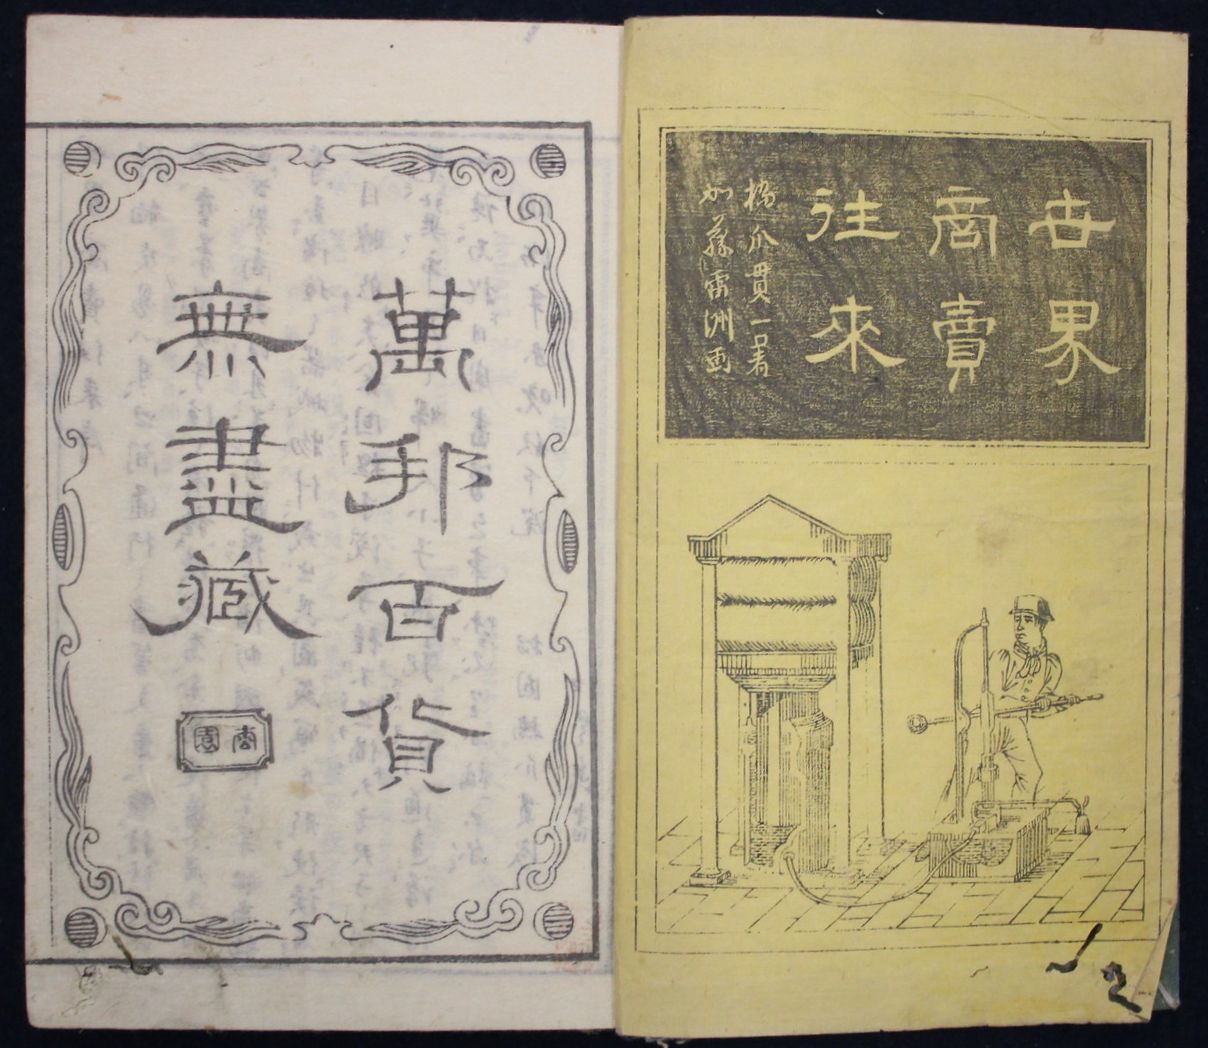 世界
商賣
往來
橋爪貫一著
加藤雷洲画
萬邦百貨
無盡藏
香園